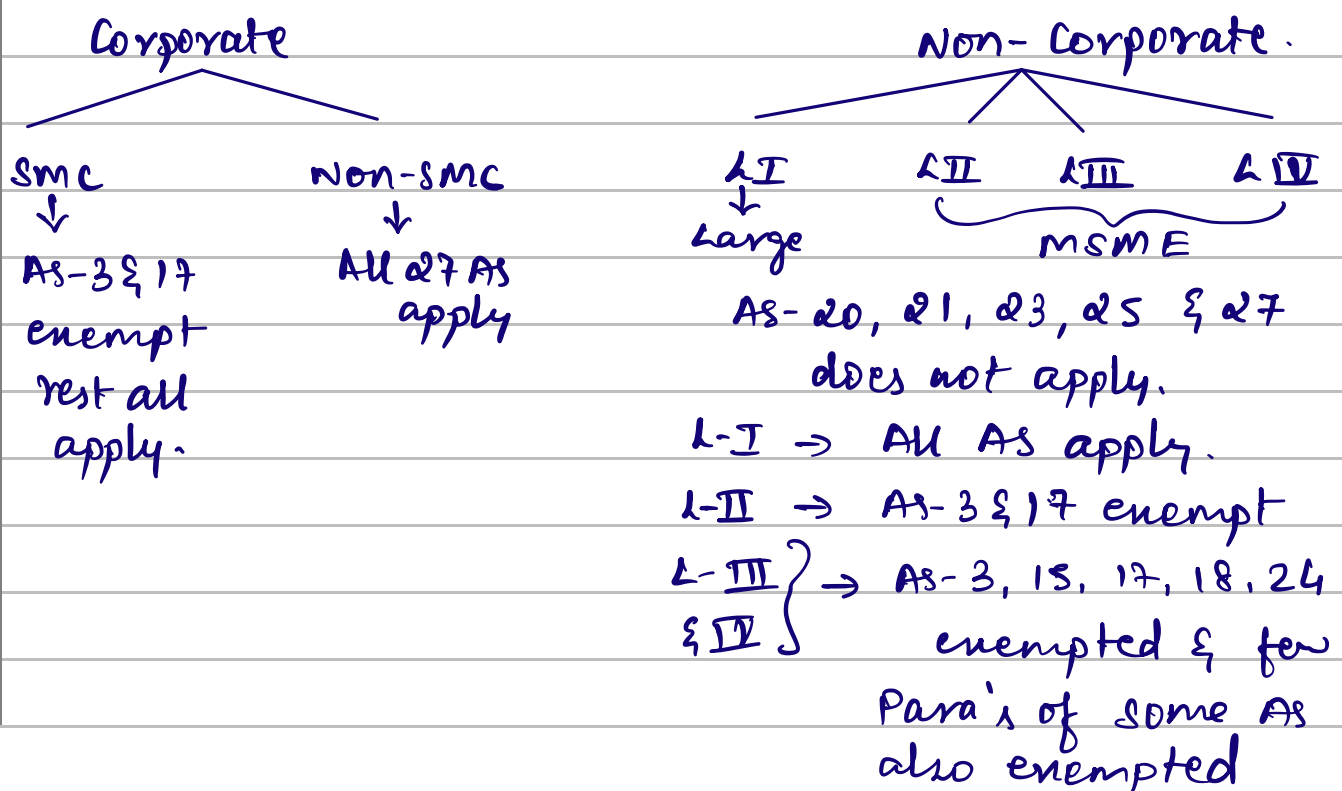 Corporate
SMC Non-SMC
AS-3 & 17
exempt
rest all
apply.
All 27 AS
apply
Non-Corporate.
L I L II L III L IV
Large
MSME
AS-20, 21, 23, 25 & 27
does not apply.
L-I → All AS apply.
L-II → AS-3 & 17 exempt
L-III
& IV } → AS-3, 15, 17, 18, 24
exempted & few
Para's of some AS
also exempted